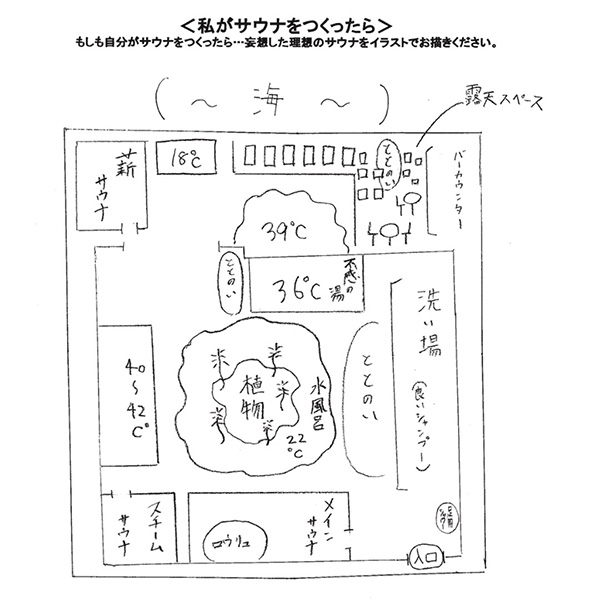 ＜私がサウナをつくったら＞
もしも自分がサウナをつくったら…妄想した理想のサウナをイラストでお描きください。
(～ 海 ～)
露天スペース
薪サウナ
18℃
ととのい
バーカウンター
39℃
ととのい
36℃
不感の湯
洗い場
(良いシャンプー)
ととのい
40～42C°
植物
水風呂
22℃
スチームサウナ
ロウリュ
メインサウナ
入口